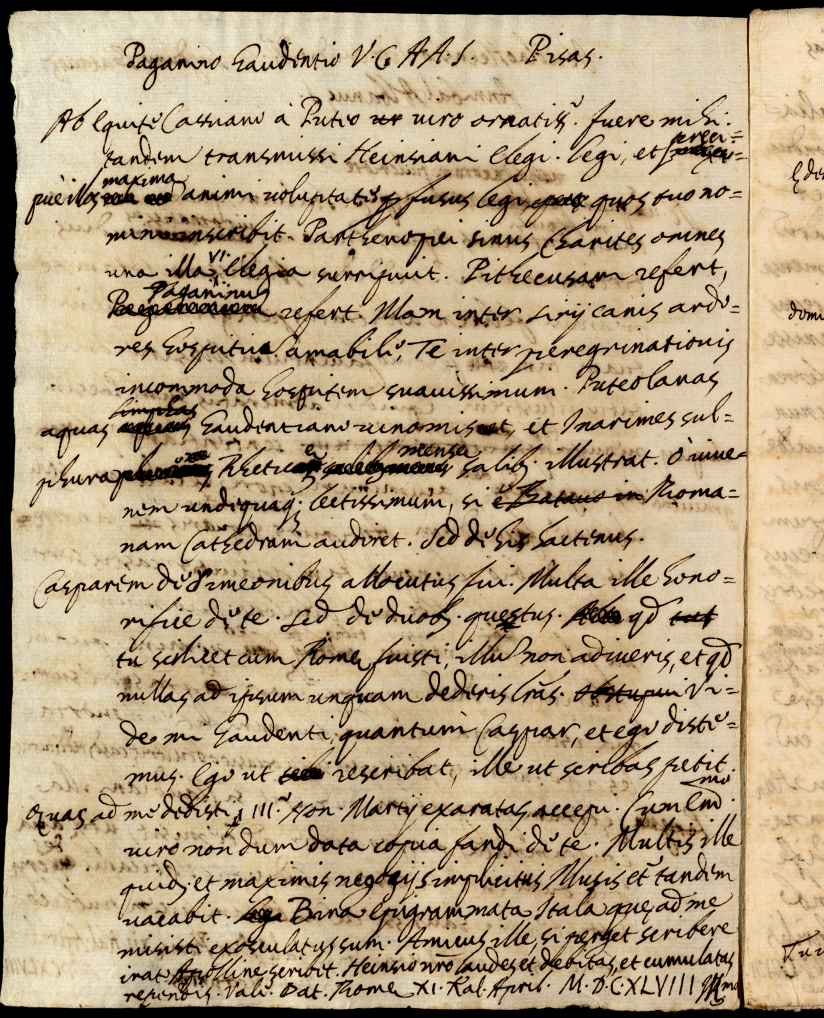 Paganino Gaudentio V. C. A A. S. Pisas.
Ab Equite Cassiano à Puteo viro ornatiss. fuere mihi
tandem transmissi Heinsiani Elegi. legi, et
maxima
animi voluptate fusus legi quos tuo no=
mini inscribit. Parthenopei sinus Charites omnes
una illa VI. Elegia surripuit. Pithecusam refert,
Paganinus
refert. Nam inter Sirij canis ardo=
res hospitium amabile, Te inter peregrinationis
incommoda hospitem suavissimum. Puteolanas
limphas
aquas Gaudentiano vino miscet, et Inarimes sul=
mensæ
phura Rhetico salib. illustrat. O iuve=
nem undequaq; lectissimum, si è Batavo in Roma=
nam Cathedram audiret. Sed de his hactenus.
Casparem de Simeonibus allocutus fui. Multa ille hono=
rifice de te. Sed de duob. questus. qd tut
tu scilicet cum Romæ fuisti, illum non adiveris, et qd
nullas ad ipsum unquam dederis lrãs. Obstupui Vi=
de mi Gaudenti, quantum Caspar, et ego diste=
mus. Ego ut tibi rescribat, ille ut scribas petit.
Quas ad me dedisti III. Non. Martij exaratas accepi. Cum Emo
viro non dum data copia fandi de te. Multis ille
quidẽ, et maximis negocijs implicitus Musis et tandem
vacabit. Bina Epigrammata Itala quæ ad me
misisti exosculatus sum. Amicus ille, si perget scribere
irat Apolline scribit. Heinsio nrõ laudes et debitas, et cumulatas
rependis. Vale. Dat. Romæ XI. Kal. April. M. D C. XLVIII